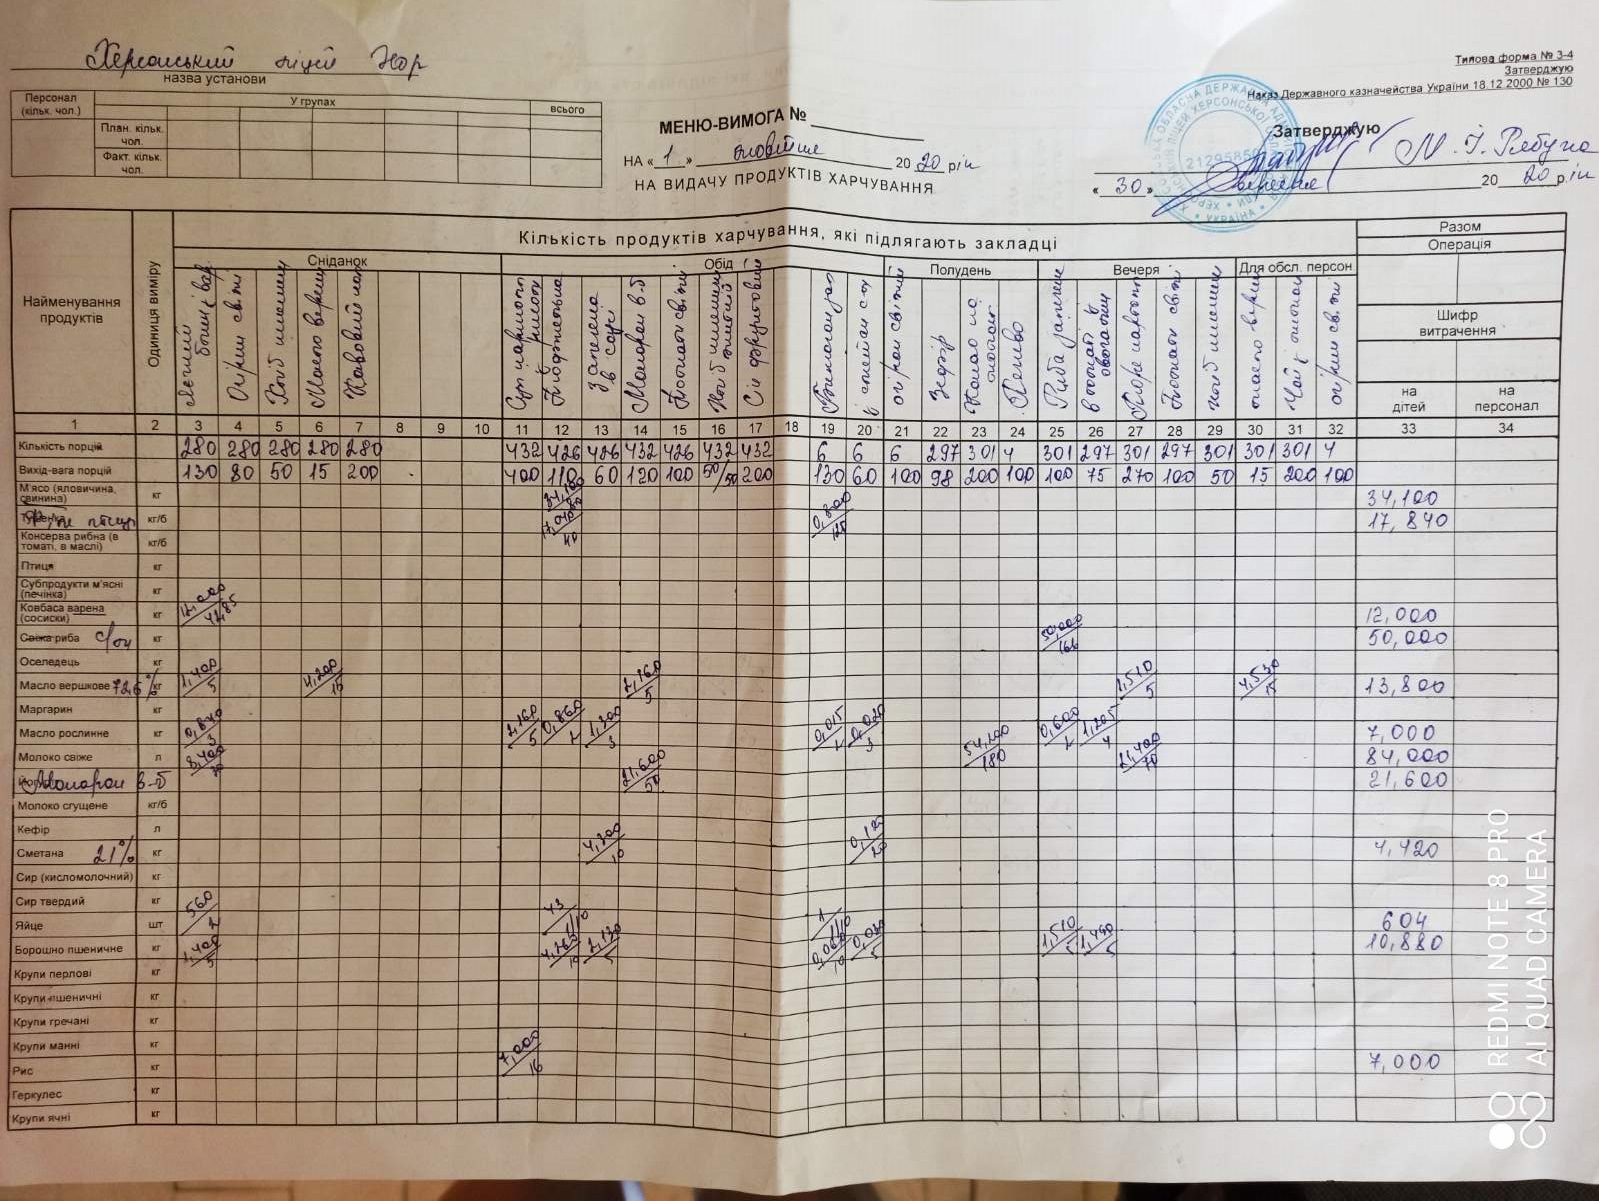 Херсонський ліцей ХОР
назва установи
Типова форма № 3-4
Затверджую
Наказ Державного казначейства України 18.12.2000 № 130
Персонал (кільк. чол.)
У групах
всього
План. кільк. чол.
Факт. кільк. чол.
МЕНЮ-ВИМОГА №
НА « 1 » жовтня 2020 рік
НА ВИДАЧУ ПРОДУКТІВ ХАРЧУВАННЯ
Затверджую
М. І. Рябуха
« 30 » вересня 2020 рік
21295850
УКРАЇНА
Найменування продуктів
Одиниця виміру
Кількість продуктів харчування, які підлягають закладці
Разом
Операція
Сніданок
Обід
Полудень
Вечеря
Для обсл. персон
Шифр витрачення
на дітей
на персонал
огірки свіжі
Макарон в-б
огірки свіжі
Зефір
Печиво
огірки свіжі
1 2 3 4 5 6 7 8 9 10 11 12 13 14 15 16 17 18 19 20 21 22 23 24 25 26 27 28 29 30 31 32 33 34
Кількість порцій 280 280 280 280 280 432 426 426 432 426 432 432 6 6 6 297 301 4 301 297 301 297 301 301 301 4
Вихід-вага порцій 130 80 50 15 200 400 110 60 120 100 50/50 200 130 60 100 98 200 100 100 75 270 100 50 15 200 100
М'ясо (яловичина, свинина) кг 34,100 34,100
кг/б 17,040/40 0,800/125 17,840
Консерва рибна (в томаті, в маслі) кг/б
Птиця кг
Субпродукти м'ясні (печінка) кг
Ковбаса варена (сосиски) кг 12,000/42,85 12,000
Свіжа риба с/м кг 50,000/166 50,000
Оселедець кг
Масло вершкове 72,6% кг 1,400/5 4,200/15 2,160/5 1,510/5 4,530/15 13,800
Маргарин кг
Масло рослинне кг 0,840/3 2,160/5 0,860/2 1,300/3 0,015/2 0,020/3 0,600/2 1,205/4 7,000
Молоко свіже л 8,400/30 54,200/180 21,400/70 84,000
Макарон в-б 21,600/50 21,600
Молоко сгущене кг/б
Кефір л
Сметана 21% кг 4,300/10 0,120/20 4,420
Сир (кисломолочний) кг
Сир твердий кг
Яйце шт 560/2 43/1/10 1/1/10 604
Борошно пшеничне кг 1,400/5 4,260/10 2,130/5 0,060/10 0,030/5 1,510/5 1,490/5 10,880
Крупи перлові кг
Крупи пшеничні кг
Крупи гречані кг
Крупи манні кг
Рис кг 7,000/16 7,000
Геркулес кг
Крупи ячні кг
REDMI NOTE 8 PRO
AI QUAD CAMERA